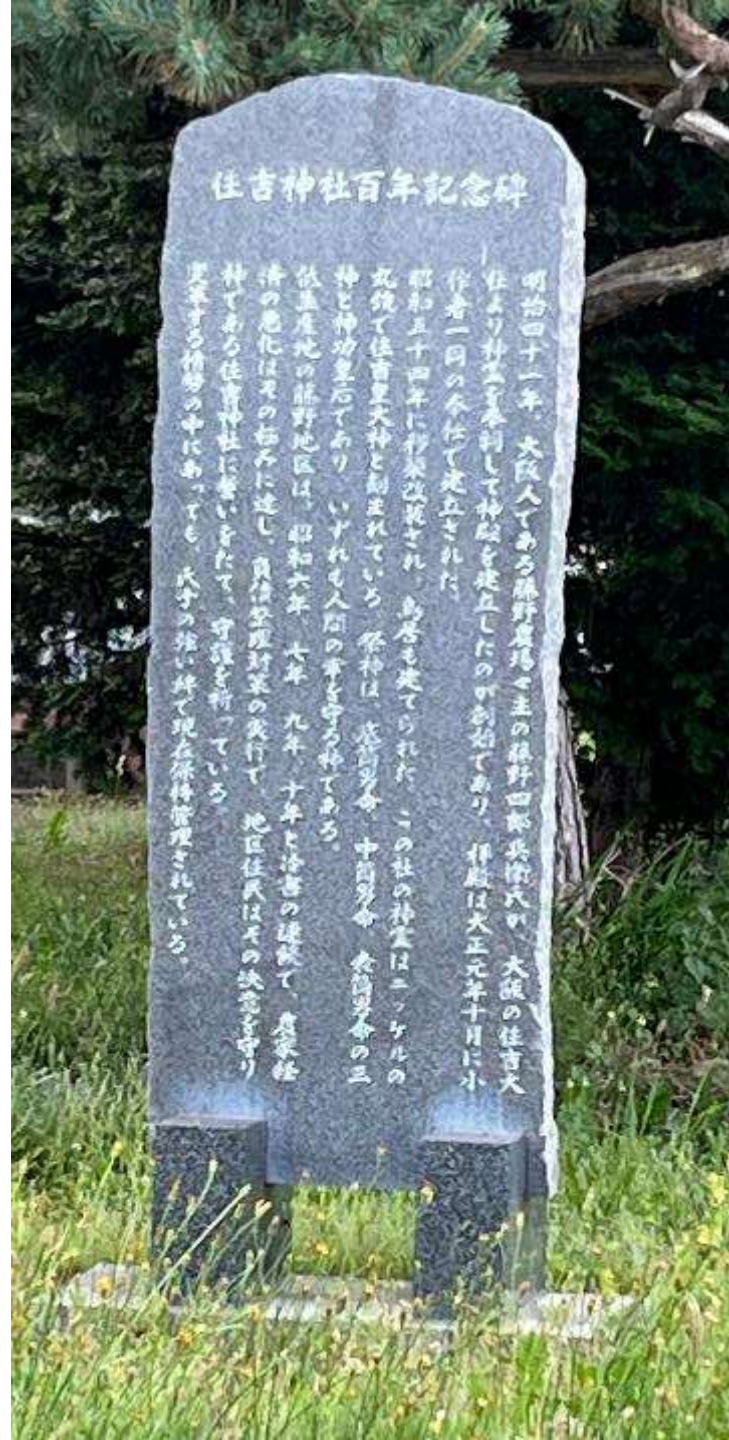 住吉神社百年記念碑
明治四十一年、大阪人である藤野農場々主の藤野四郎兵衛氏が、大阪の住吉大
社より神霊を奉祠して神殿を建立したのが創始であり、拝殿は大正元年十月に小
作者一同の奉仕で建立された。
昭和五十四年に移築改装され、鳥居も建てられた。この社の神霊はニッケルの
丸鏡で住吉皇大神と刻まれている。祭神は、底筒男命 中筒男命 表筒男命の三
神と神功皇后であり、いずれも人間の事を守る神である。
低温産地の藤野地区は、昭和六年、七年 九年 十年と冷害の連続で、農家経
済の悪化はその極みに達し、負債整理対策の実行で、地区住民はその決意を守り
神である住吉神社に誓いをたて、守護を祈っている。
変革する情勢の中にあっても、氏子の強い絆で現在保持管理されている。